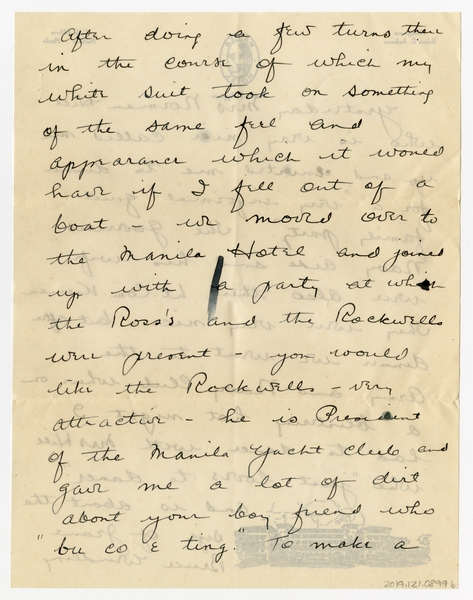 After doing a few turns there
in the course of which my
white suit took on something
of the same feel and
appearance which it would
have if I fell out of a
boat - we moved over to
the Manila Hotel and joined
up with a party at which
the Ross's and the Rockwells
were present - you would
like the Rockwells - very
attractive - he is President
of the Manila Yacht Club and
gave me a lot of dirt
about your boy friend who
To make a
2019.121.0899b